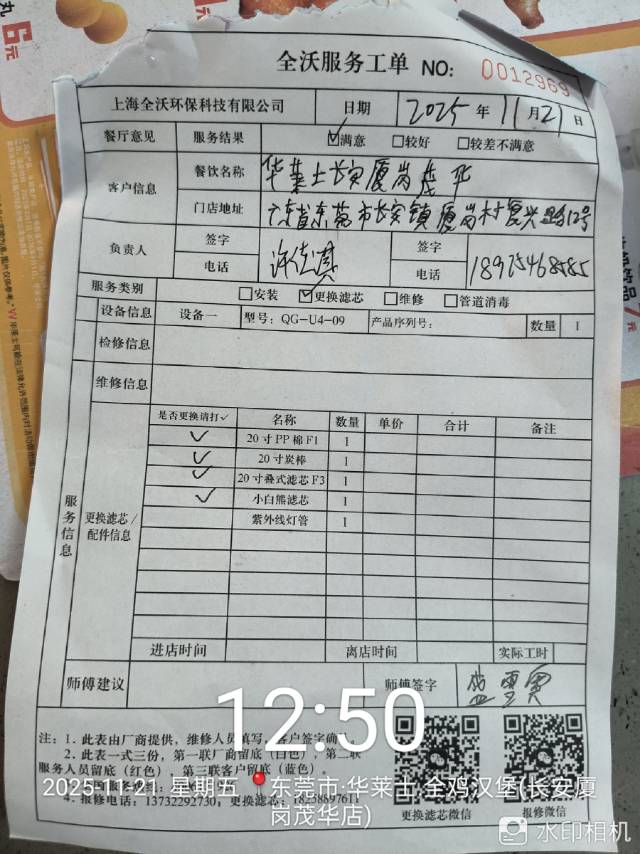 6元
全沃服务工单 NO: 0012969
上海全沃环保科技有限公司 日期 2025年11月21日
餐厅意见 服务结果 ☑满意 □较好 □较差不满意
客户信息 餐饮名称 华莱士长安厦岗茂华
门店地址 广东省东莞市长安镇厦岗村复兴路12号
负责人 签字 签字
电话 电话 18925468585
服务类别 □安装 ☑更换滤芯 □维修 □管道消毒
设备信息 设备一 型号: QG-U4-09 产品序列号: 数量 1
检修信息
维修信息
服务信息
更换滤芯/配件信息
是否更换请打✓ 名称 数量 单价 合计 备注
✓ 20寸PP棉F1 1
✓ 20寸炭棒 1
✓ 20寸叠式滤芯F3 1
✓ 小白熊滤芯 1
紫外线灯管 1
进店时间 离店时间 实际工时
师傅建议 师傅签字
12:50
注: 1. 此表由厂商提供, 维修人员填写, 客户签字确
2. 此表一式三份, 第一联厂商留底(白色), 第二联
服务人员留底(红色) 第三联客户留底(蓝色)。
2025-11-21 星期五 东莞市·华莱士 全鸡汉堡(长安厦岗茂华店)
4. 报修电话: 13732292730, 更换滤芯:
更换滤芯微信 报修微信
水印相机